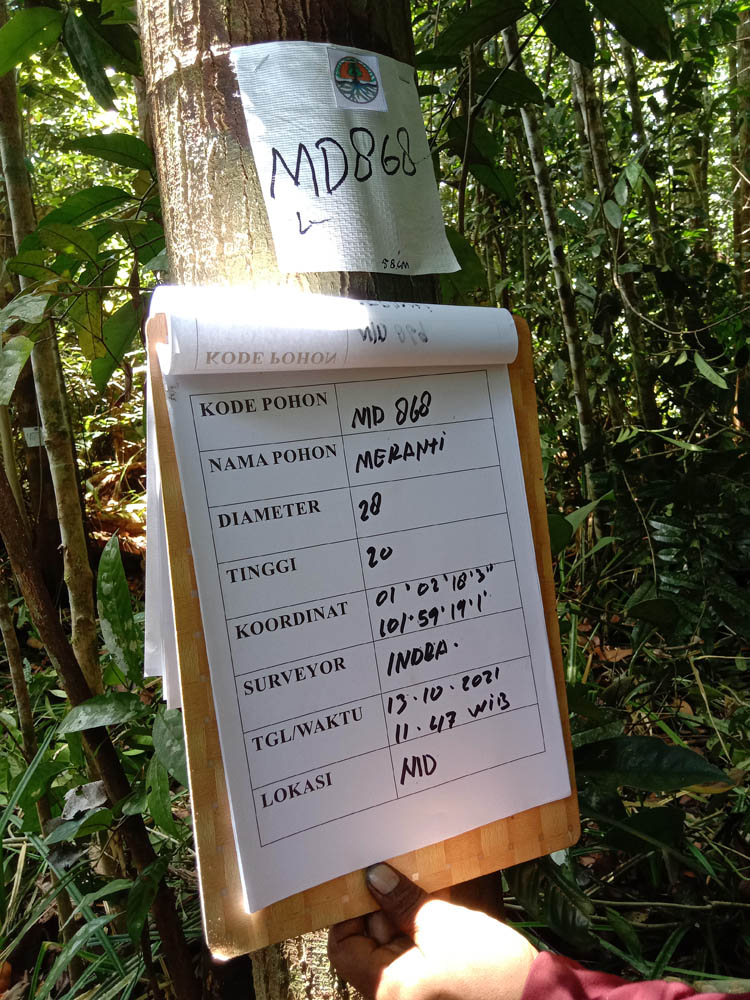 MD868
58cm
KODE POHON
MD 868
KODE POHON MD 868
NAMA POHON MERANTI
DIAMETER 28
TINGGI 20
KOORDINAT 01°02'18'3"
101°59'19'1'
SURVEYOR INDRA.
TGL/WAKTU 13.10.2021
11.47 WIB
LOKASI MD